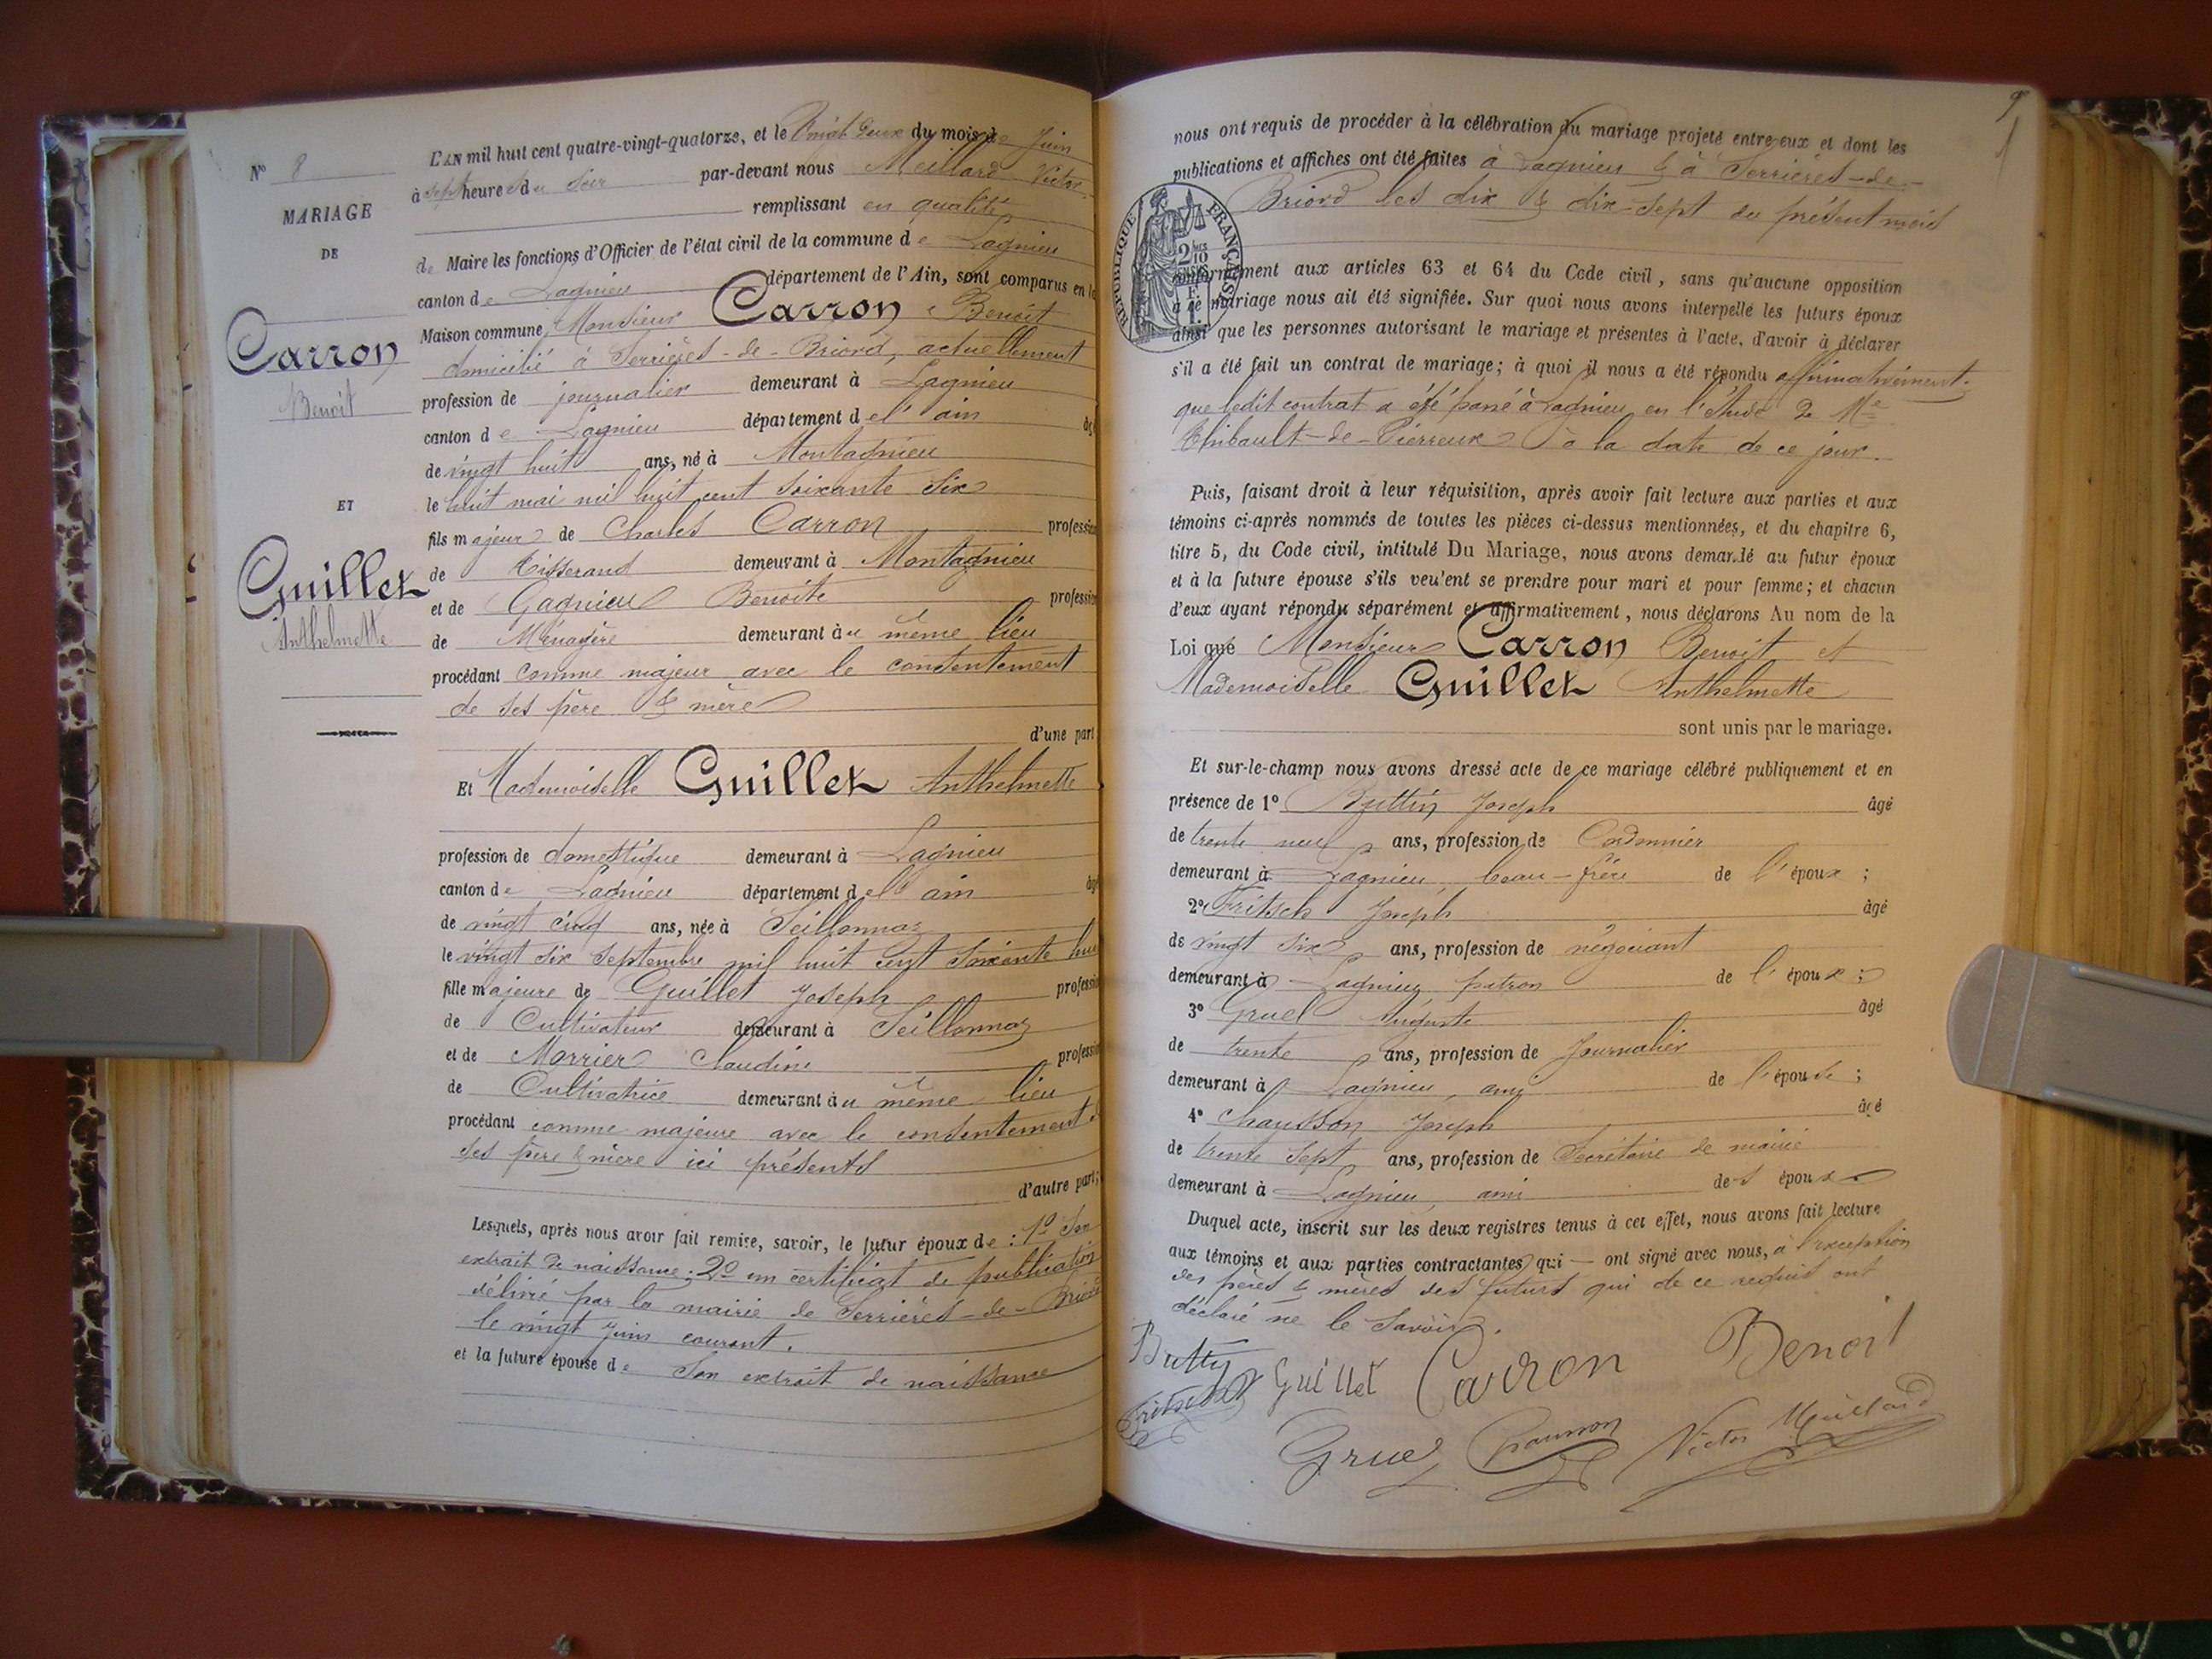 N° 8
MARIAGE
DE
Carron
Benoit
ET
Guillet
Anthelmette
L'AN mil huit cent quatre-vingt-quatorze, et le Vingt deux du mois de Juin
à sept heures du Soir par-devant nous Meillard Victor
remplissant en qualité
de Maire les fonctions d'Officier de l'état civil de la commune de Lagnieu
canton de Lagnieu département de l'Ain, sont comparus en la
Maison commune, Monsieur Carron Benoit
domicilié à Serrières-de-Briord, actuellement
profession de journalier demeurant à Lagnieu
canton de Lagnieu département de l'ain âgé
de vingt huit ans, né à Montagnieu
le huit mai mil huit cent soixante six
fils majeur de Charles Carron profession
de Tisserand demeurant à Montagnieu
et de Gagnieu Benoite profession
de Ménagère demeurant au même lieu
procédant comme majeur avec le consentement
de ses père & mère
d'une part
Et Mademoiselle Guillet Anthelmette
profession de domestique demeurant à Lagnieu
canton de Lagnieu département de l'ain âgé
de vingt cinq ans, née à Seillonnaz
le vingt six Septembre mil huit cent soixante hui
fille majeure de Guillet Joseph profession
de Cultivateur demeurant à Seillonnaz
et de Morrier Claudine profession
de Cultivatrice demeurant au même lieu
procédant comme majeure avec le consentement
ses père & mère ici présents
d'autre part;
Lesquels, après nous avoir fait remise, savoir, le futur époux de : 1° Son
extrait de naissance; 2° un certificat de publication
délivré par la mairie de Serrières-de-Briord
le vingt Juin courant.
et la future épouse de Son extrait de naissance
9
nous ont requis de procéder à la célébration du mariage projeté entre eux et dont les
publications et affiches ont été faites à Lagnieu & à Serrières-de-
Briord les dix & dix-sept du présent mois
RÉPUBLIQUE FRANÇAISE
conformément aux articles 63 et 64 du Code civil, sans qu'aucune opposition
à ce mariage nous ait été signifiée. Sur quoi nous avons interpellé les futurs époux
ainsi que les personnes autorisant le mariage et présentes à l'acte, d'avoir à déclarer
s'il a été fait un contrat de mariage; à quoi il nous a été répondu affirmativement.
que ledit contrat a été passé à Lagnieu en l'étude de Me
Thibault-de-Pierreux à la date de ce jour.
Puis, faisant droit à leur réquisition, après avoir fait lecture aux parties et aux
témoins ci-après nommés de toutes les pièces ci-dessus mentionnées, et du chapitre 6,
titre 5, du Code civil, intitulé Du Mariage, nous avons demandé au futur époux
et à la future épouse s'ils veulent se prendre pour mari et pour femme; et chacun
d'eux ayant répondu séparément et affirmativement, nous déclarons Au nom de la
Loi que Monsieur Carron Benoit et
Mademoiselle Guillet Anthelmette
sont unis par le mariage.
Et sur-le-champ nous avons dressé acte de ce mariage célébré publiquement et en
présence de 1° Buttin Joseph âgé
de trente neuf ans, profession de Cordonnier
demeurant à Lagnieu, beau-frère de l'époux ;
2° Fritsch Joseph âgé
de vingt six ans, profession de négociant
demeurant à Lagnieu, patron de l'époux ;
3° Gruel Auguste âgé
de trente ans, profession de Journalier
demeurant à Lagnieu, ami de l'épouse ;
4° Chausson Joseph âgé
de trente sept ans, profession de Secrétaire de mairie
demeurant à Lagnieu, ami des époux
Duquel acte, inscrit sur les deux registres tenus à cet effet, nous avons fait lecture
aux témoins et aux parties contractantes qui — ont signé avec nous, à l'exception
des pères & mères des futurs qui de ce requis ont
déclaré ne le savoir.
Guillet Carron Benoit
Gruel Chausson Victor Meillard